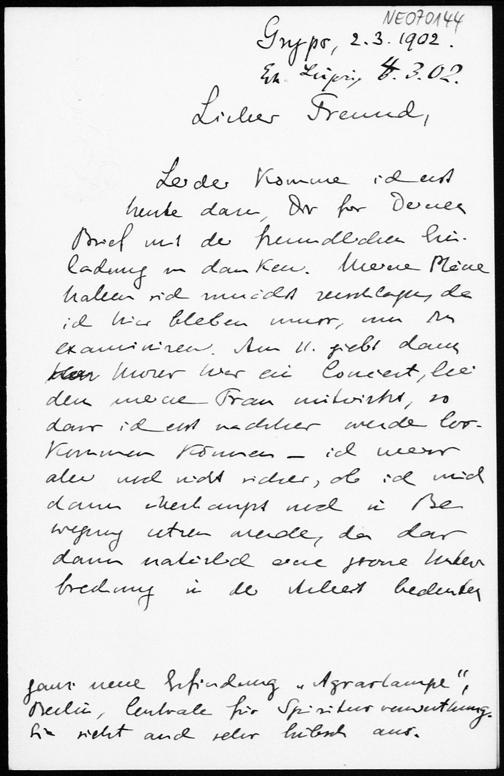 NE070144
Gryps, 2.3.1902.
Erh. Leipzig 4.3.02.
Lieber Freund,
Leider komme ich erst
heute dazu, Dir für Deinen
Brief mit der freundlichen Ein-
ladung zu danken. Meine Pläne
haben sich zunächst zerschlagen, da
ich hier bleiben muss, um zu
examiniren. Am 11. giebt dann
Moser hier ein Concert, bei
dem meine Frau mitwirkt, so
dass ich erst nachher werde los-
kommen können – ich weiss
aber noch nicht sicher, ob ich mich
dann überhaupt noch in Be
wegung setzen werde, da das
dann natürlich eine grosse Unter
brechung in der Arbeit bedeuten
ganz neue Erfindung „Agrarlampe“,
Berlin, Centrale für Spiritusverwerthung.
Sie sieht auch sehr hübsch aus.